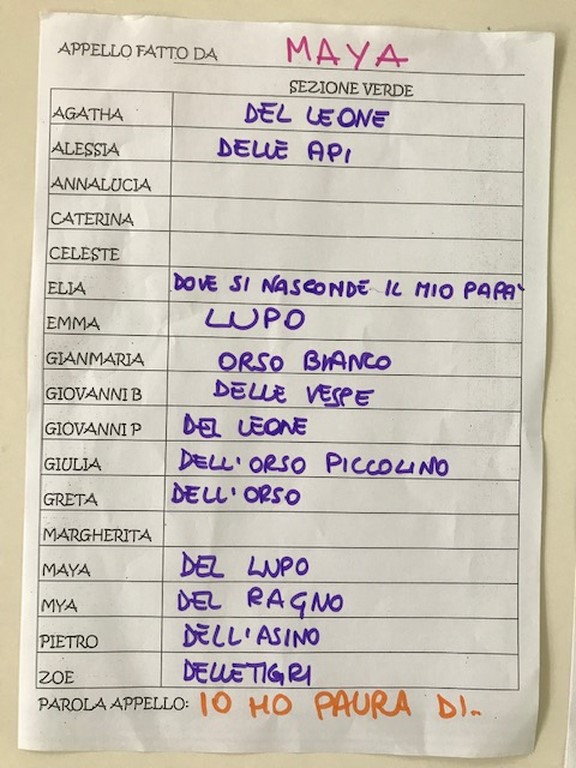 APPELLO FATTO DA MAYA
SEZIONE VERDE
AGATHA DEL LEONE
ALESSIA DELLE API
ANNALUCIA
CATERINA
CELESTE
ELIA DOVE SI NASCONDE IL MIO PAPA'
EMMA LUPO
GIANMARIA ORSO BIANCO
GIOVANNI B DELLE VESPE
GIOVANNI P DEL LEONE
GIULIA DELL'ORSO PICCOLINO
GRETA DELL'ORSO
MARGHERITA
MAYA DEL LUPO
MYA DEL RAGNO
PIETRO DELL'ASINO
ZOE DELLE TIGRI
PAROLA APPELLO: IO HO PAURA DI..